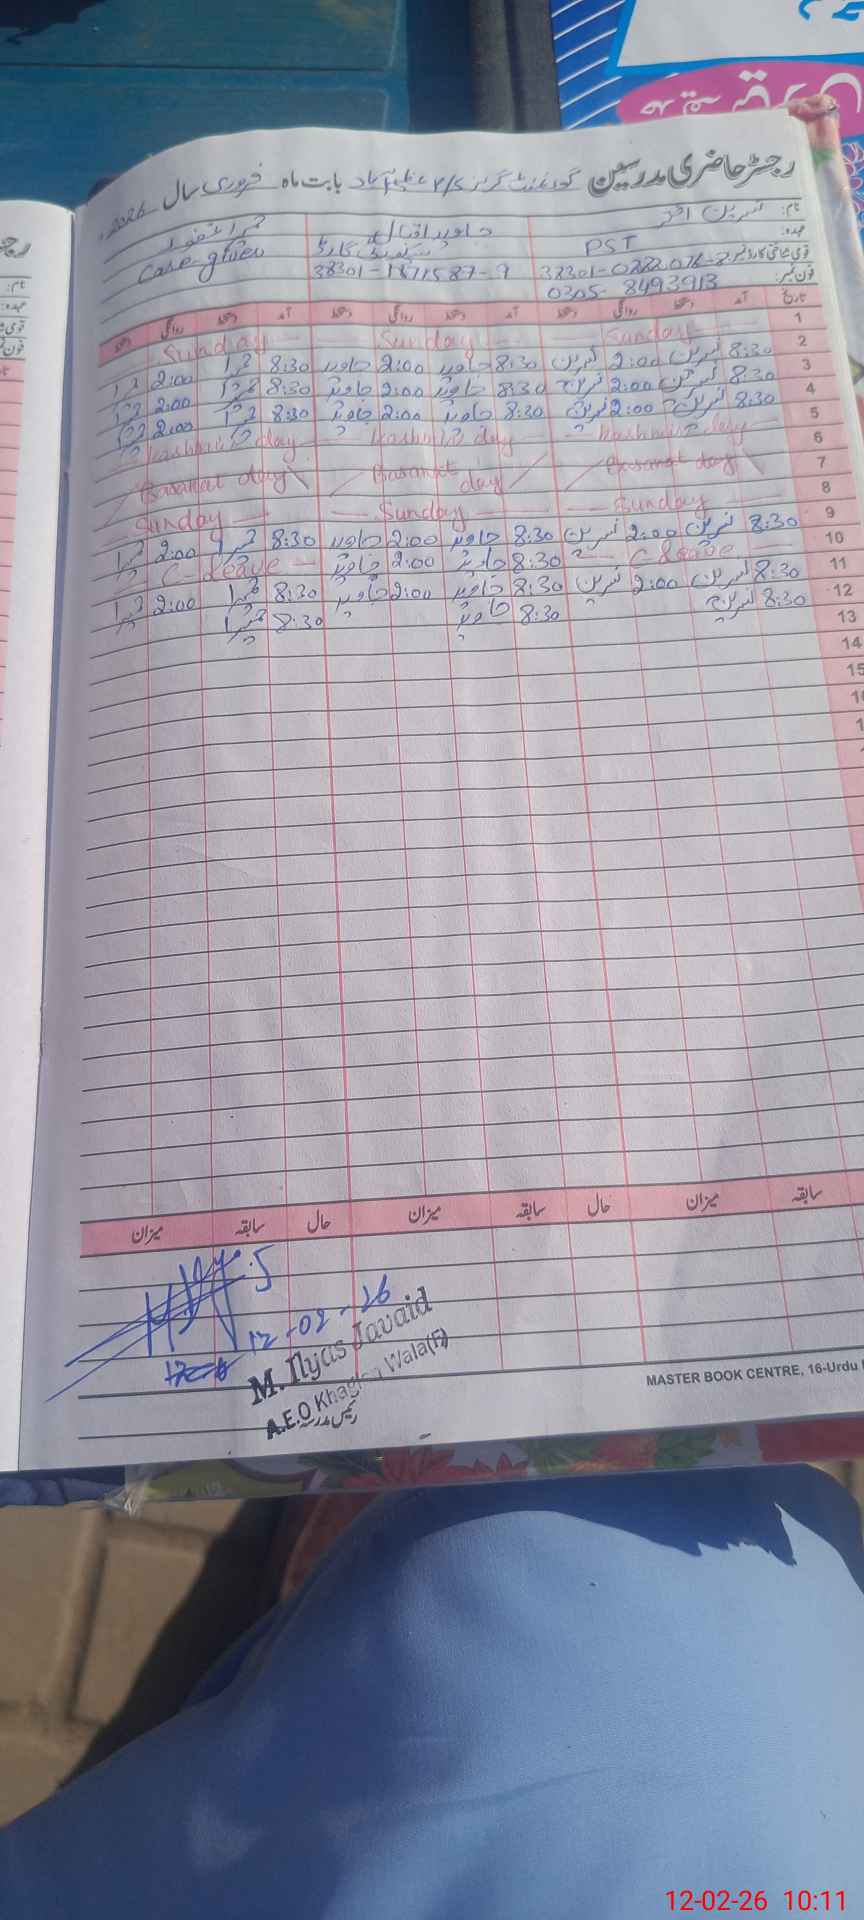 رجسٹر حاضری مدرسین گورنمنٹ گرلز بابت ماہ فروری سال 2026ء
نام: نسرین اختر جاوید اقبال
عہدہ: PST سیکورٹی گارڈ Care-giver
قومی شناختی کارڈ نمبر: 38301-1871587-9
فون نمبر: 0305-8493913
تاریخ آمد دستخط روانگی دستخط آمد دستخط روانگی دستخط آمد دستخط روانگی دستخط
1 Sunday Sunday Sunday
2 8:30 نسرین 2:00 نسرین 8:30 جاوید 2:00 جاوید 8:30 2:00
3 8:30 نسرین 2:00 نسرین 8:30 جاوید 2:00 جاوید 8:30 2:00
4 8:30 نسرین 2:00 نسرین 8:30 جاوید 2:00 جاوید 8:30 2:00
5 Kashmir day Kashmir day Kashmir day
6 Basanat day Basanat day Basanat day
7
8 Sunday Sunday Sunday
9 8:30 نسرین 2:00 نسرین 8:30 جاوید 2:00 جاوید 8:30 2:00
10 C-leave 8:30 جاوید 2:00 جاوید C-Leave
11 8:30 نسرین 2:00 نسرین 8:30 جاوید 2:00 جاوید 8:30 2:00
12 8:30 نسرین 8:30 جاوید 8:30
13
14
15
سابقہ میزان حال سابقہ میزان حال سابقہ میزان
12-02-26
M. Ilyas Javaid
A.E.O Wala(F)
رئیس مدرسہ
MASTER BOOK CENTRE, 16-Urdu
12-02-26 10:11